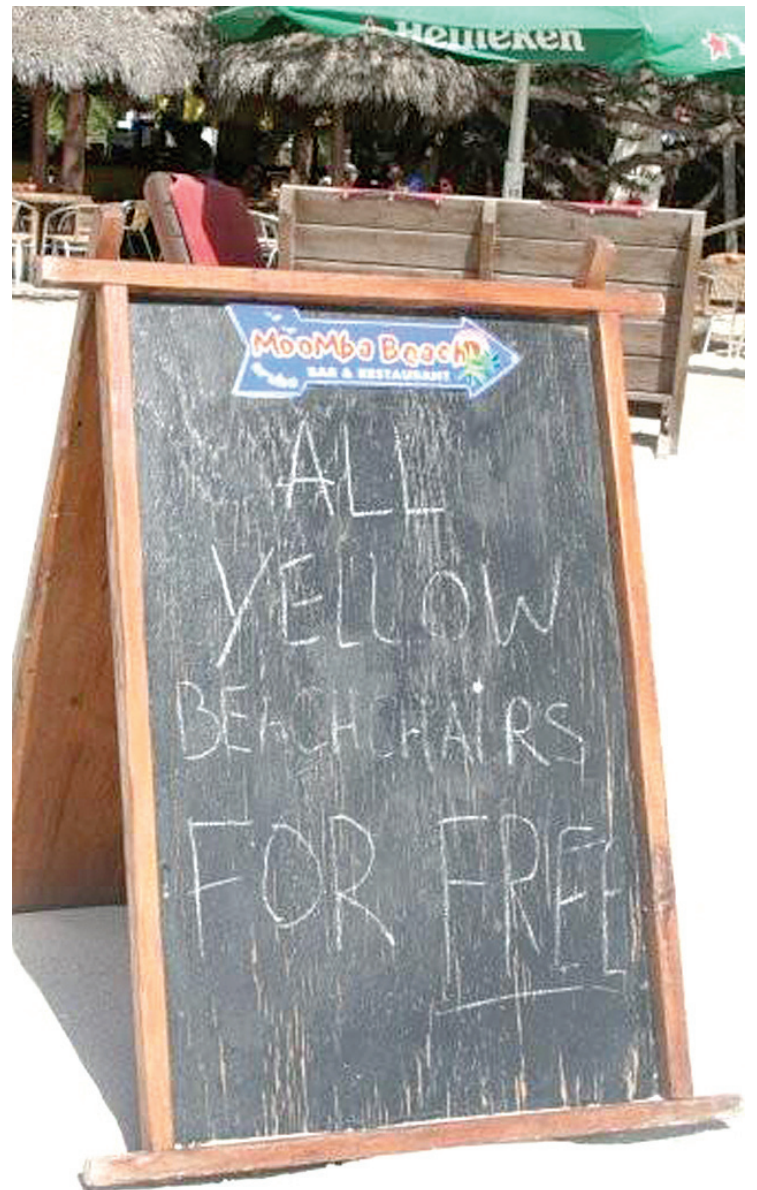 Heineken
MooMba Beach
BAR & RESTAURANT
ALL
YELLOW
BEACHCHAiRS
FOR FREE